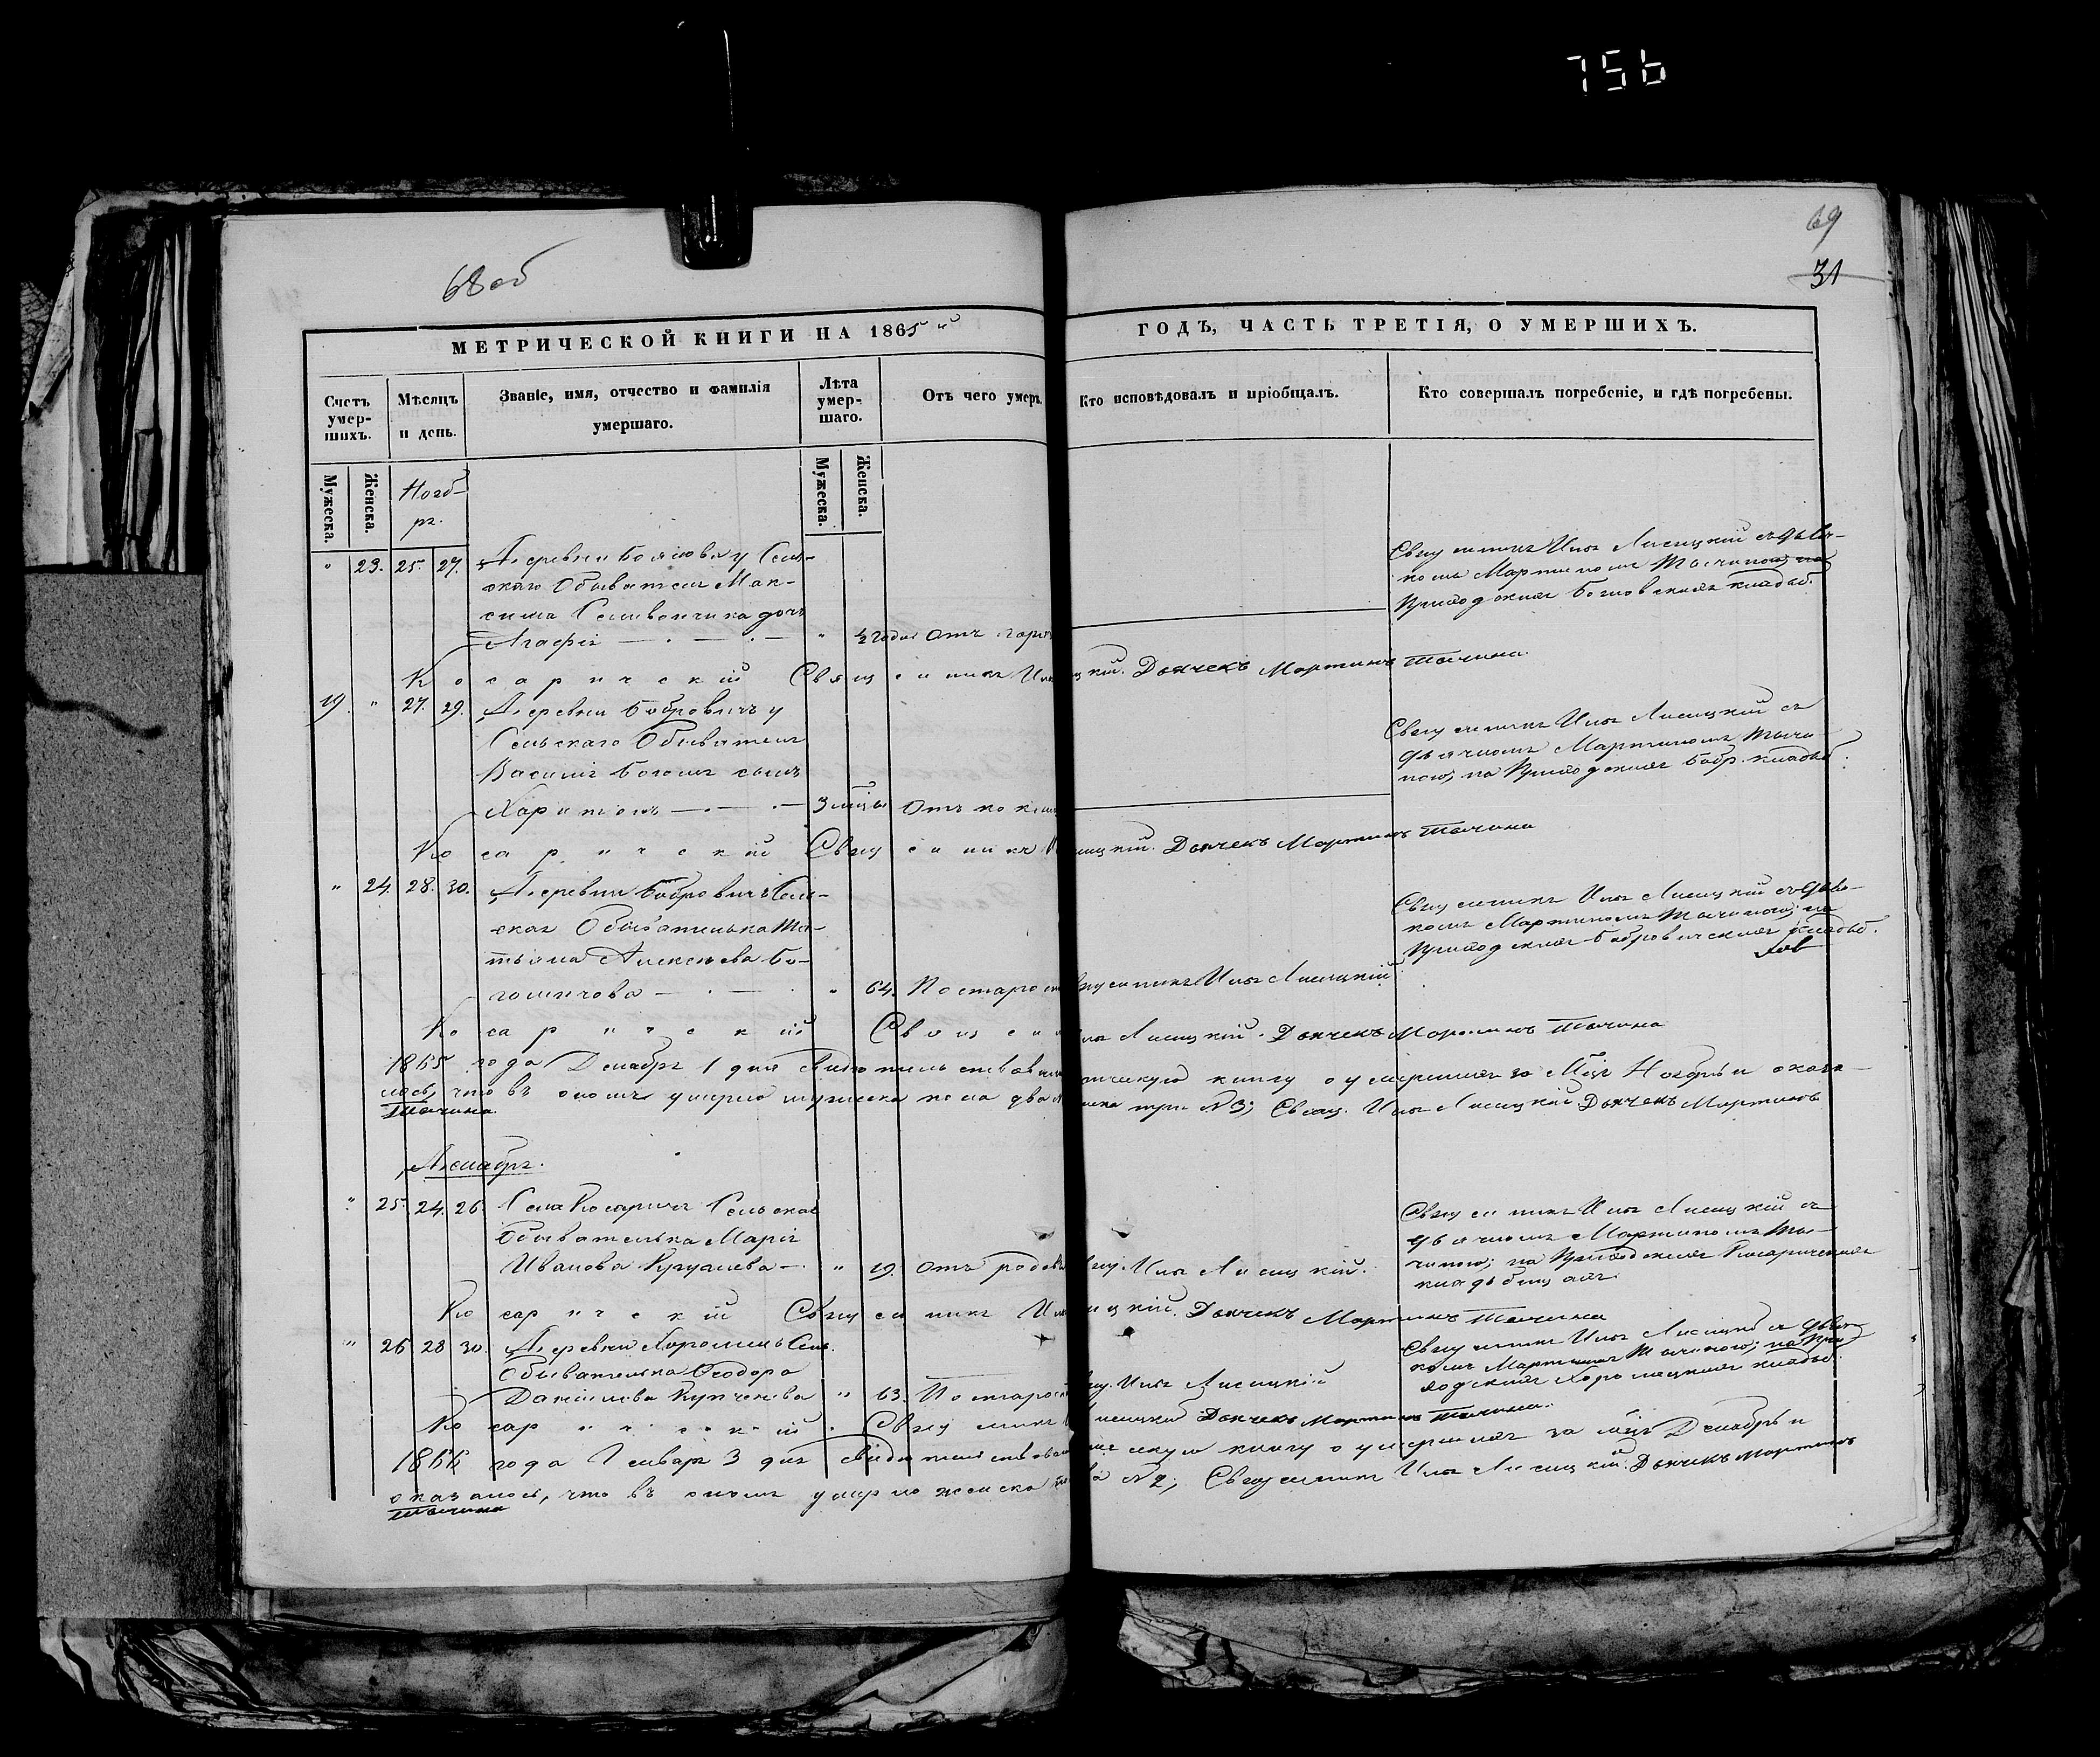 756
69
31
68 об
МЕТРИЧЕСКОЙ КНИГИ НА 1865 й ГОДЪ, ЧАСТЬ ТРЕТІЯ, О УМЕРШИХЪ.
Счетъ умер-
шихъ.
Мѣсяцъ
и день.
Званіе, имя, отчество и фамилія
умершаго.
Лѣта
умер-
шаго.
Отъ чего умеръ.
Кто исповѣдовалъ и пріобщалъ.
Кто совершалъ погребеніе, и гдѣ погребены.
Мужеска.
Женска.
Нояб-
ря.
Мужеска.
Женска.
" 23. 25. 27. Деревни у Сель-
скаго Обывателя Мак-
сима дочь
Агафія " ½ года Отъ
Священникъ Илія Лисицкій съ дьяч-
комъ Мартиномъ Тычиною, на
Приходскомъ кладб.
Косаричскій Священникъ Лисицкій. Дьячекъ Мартинъ Тычина.
19 " 27. 29. Деревни Бобровичъ у
Сельскаго Обывателя
Василія сынъ
Харитонъ 3 мцы Отъ
Священникъ Илія Лисицкій съ
дьячкомъ Мартиномъ Тычи-
ною, на Приходскомъ Бобр. кладб.
Косаричскій Священникъ Лисицкій. Дьячекъ Мартинъ Тычина
" 24. 28. 30. Деревни Бобровичъ Сель-
ская Обывателька Та-
тьяна Алексѣева Бо-
" 64. По старости Священникъ Илія Лисицкій
Священникъ Илія Лисицкій съ дьяч-
комъ Мартиномъ Тычиною, на
Приходскомъ Бобровичскомъ кладб.
Косаричскій Священникъ Илія Лисицкій. Дьячекъ Мартинъ Тычина
1865 года Декабря 1 дня свидѣтельствовали книгу о умершихъ за Мцъ Ноябрь и оказа-
лось, что въ ономъ умерло мужеска пола два женска три №3; Свящ. Илія Лисицкій Дьячекъ Мартинъ
Тычина
Декабрь.
" 25. 24. 26. Села Косаричъ Сельская
Обывателька Марія
Иванова " 19. Отъ родовъ Свящ. Илія Лисицкій.
Священникъ Илія Лисицкій съ
дьячкомъ Мартиномъ Ты-
чиною, на Приходскомъ Косаричскомъ
кладбищѣ.
Косаричскій Священникъ Лисицкій. Дьячекъ Мартинъ Тычина
" 26 28 30. Деревни Хоромецъ Сель.
Обывателька Ѳеодора
Даніилова " 63. По старости Свящ. Илія Лисицкій
Священникъ Илія Лисицкій съ дьяч-
комъ Мартиномъ Тычиною, на При-
ходскомъ Хоромецкомъ кладб.
Косаричскій Священникъ Лисицкій Дьячекъ Мартинъ Тычина.
1866 года Января 3 дня свидѣтельствовали книгу о умершихъ за мцъ Декабрь и
оказалось, что въ ономъ умерло женска №2; Священникъ Илія Лисицкій. Дьячекъ Мартинъ
Тычина